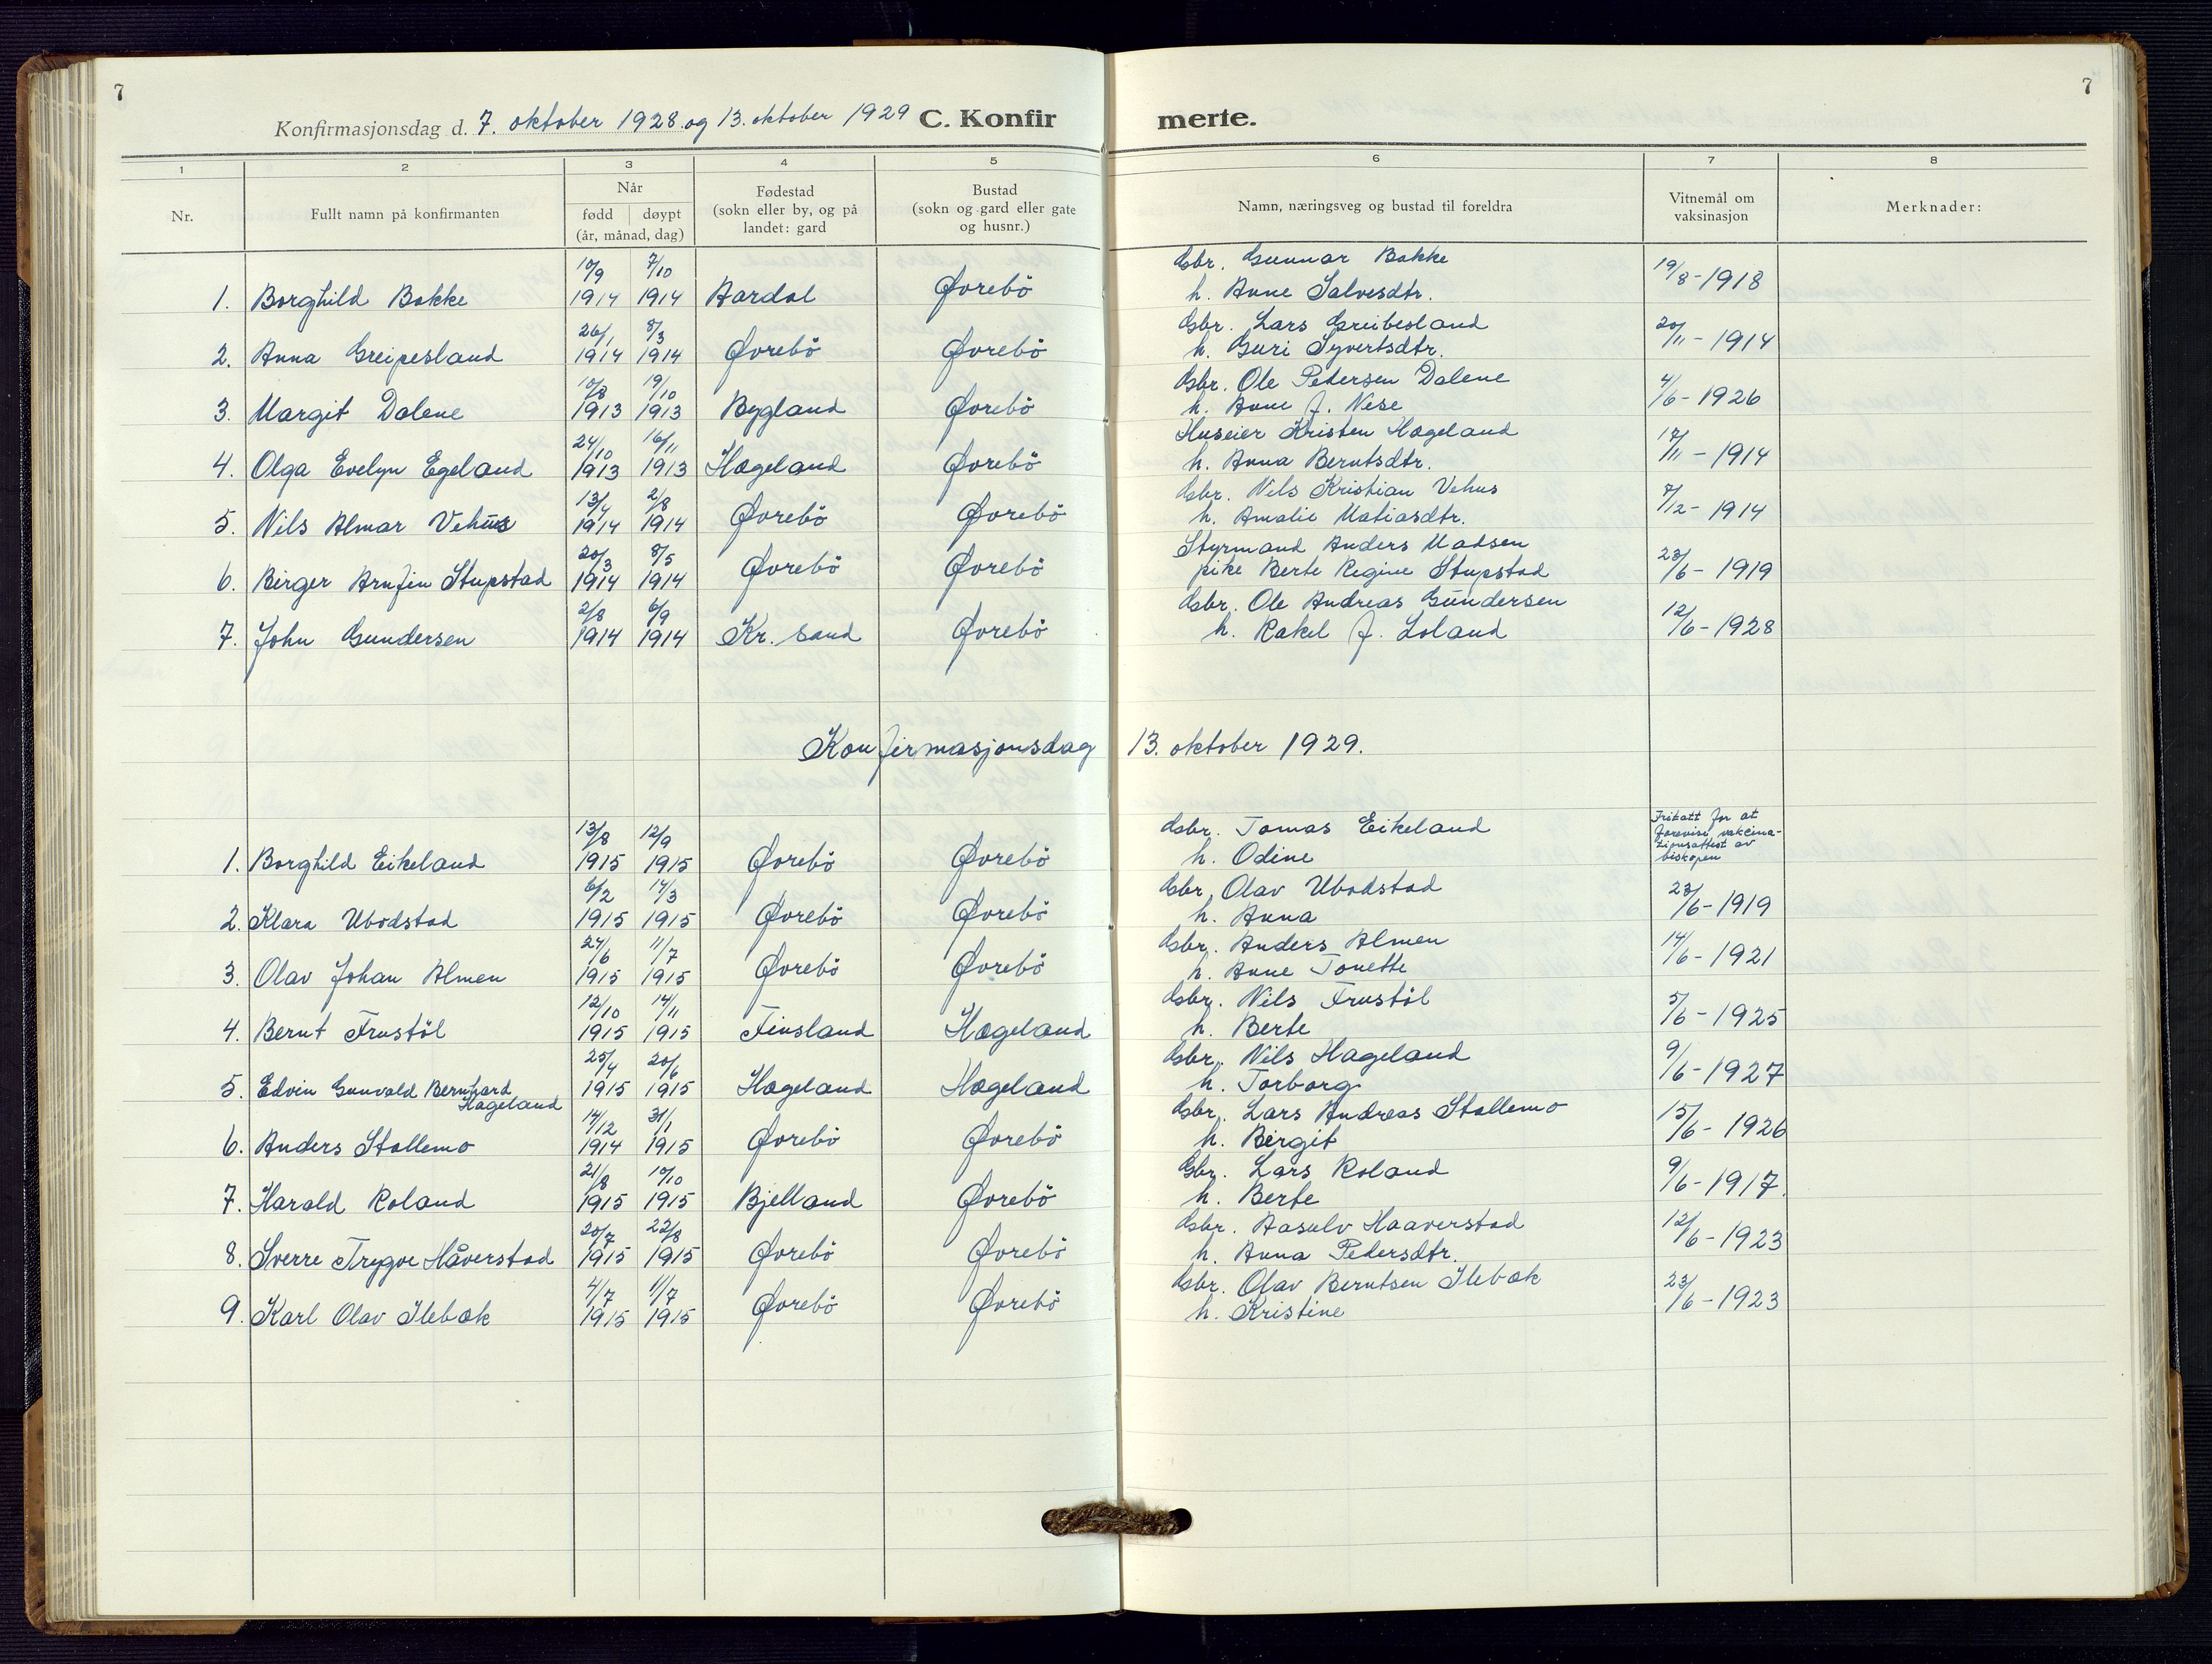 7
7
Konfirmasjonsdag d. 7. oktober 1928 og 13. oktober 1929 C. Konfirmerte.
1 2 3 4 5 6 7 8
Nr.
Fullt namn på konfirmanten
Når
fødd døypt
(år, månad, dag)
Fødestad
(sokn eller by, og på
landet: gard
Bustad
(sokn og gard eller gate
og husnr.)
Namn, næringsveg og bustad til foreldra
Vitnemål om
vaksinasjon
Merknader:
10/9 7/10 Gbr. Gunnar Bakke
1. Borghild Bakke 1914 1914 Aardal Øvrebö h. Anne Salvesdtr. 19/8-1918
26/1 8/3 Gbr. Lars Greibesland
2. Anna Greipesland 1914 1914 Øvrebö Øvrebö h. Guri Syvertsdtr. 20/11-1914
10/8 19/10 Gbr. Ole Petersen Dalene
3. Margit Dalene 1913 1913 Bygland Øvrebö h. Anne J. Nese 4/6-1926
24/10 16/11 Huseier Kristen Hægeland
4. Olga Evelyn Egeland 1913 1913 Hægeland Øvrebö h. Anna Berntsdtr. 17/11-1914
13/4 2/8 Gbr. Nils Kristian Vehus
5. Nils Almar Vehus 1914 1914 Øvrebö Øvrebö h. Amalie Matiasdtr. 7/12-1914
20/3 8/5 Styrmand Anders Madsen
6. Birger Arnfin Stupstad 1914 1914 Øvrebö Øvrebö pike Berte Regine Stupstad 23/6-1919
2/8 6/9 Gbr. Ole Andreas Gundersen
7. John Gundersen 1914 1914 Kr. sand Øvrebö h. Rakel J. Loland 12/6-1928
Konfirmasjonsdag 13. oktober 1929.
13/8 12/9 Gbr. Tomas Eikeland Fritatt for at
forevise vakcina-
1. Borghild Eikeland 1915 1915 Øvrebö Øvrebö h. Odine tionsattest av
biskopen
6/2 14/3 Gbr. Olav Ubodstad
2. Klara Ubodstad 1915 1915 Øvrebö Øvrebö h. Anna 23/6-1919
24/6 11/7 Gbr. Anders Almen
3. Olav Johan Almen 1915 1915 Øvrebö Øvrebö h. Anne Tonette 14/6-1921
12/10 14/11 Gbr. Nils Frustöl
4. Bernt Frustöl 1915 1915 Finsland Hægeland h. Berte 5/6-1925
25/4 20/6 Gbr. Nils Hageland
5. Edvin Gunvald Bernhard 1915 1915 Hægeland Hægeland h. Torborg 9/6-1927
Hageland
14/12 31/1 Gbr. Lars Andreas Stallemo
6. Anders Stallemo 1914 1915 Øvrebö Øvrebö h. Birgit 15/6-1926
21/8 10/10 Gbr. Lars Roland
7. Harald Roland 1915 1915 Bjelland Øvrebö h. Berte 9/6-1917.
20/7 22/8 Gbr. Aasulv Haaverstad
8. Sverre Trygve Håverstad 1915 1915 Øvrebö Øvrebö h. Anna Pedersdtr. 12/6-1923
4/7 11/7 Gbr. Olav Berntsen Ilebæk
9. Karl Olav Ilebæk 1915 1915 Øvrebö Øvrebö h. Kristine 23/6-1923